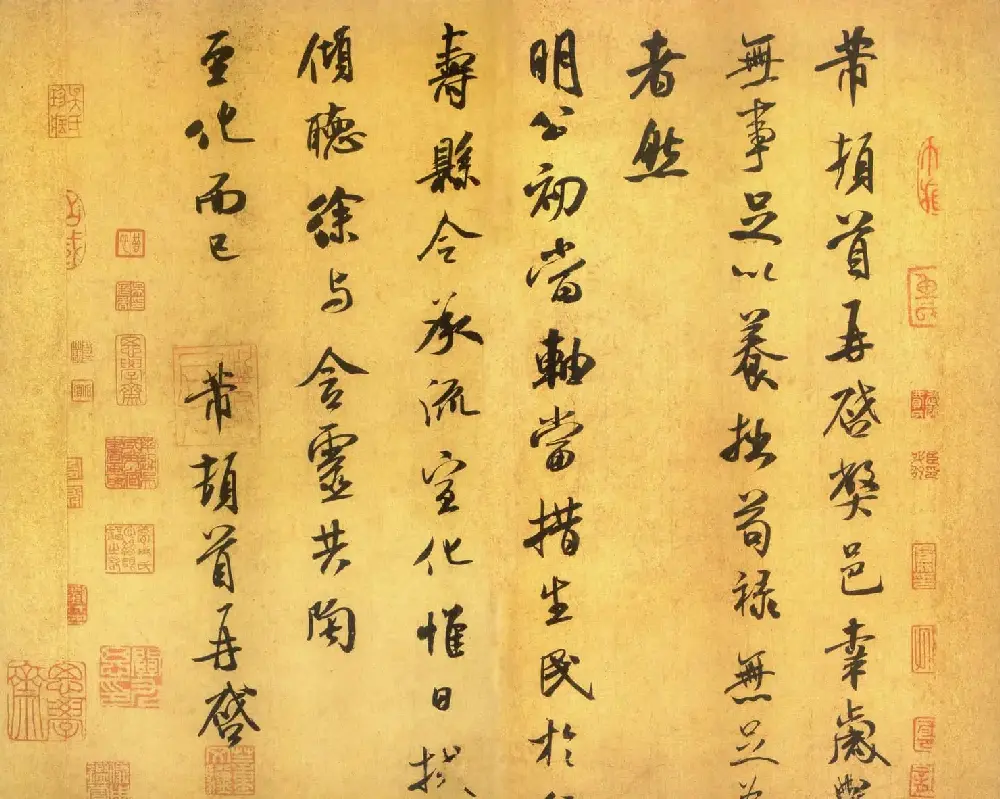 芾頓首再啓弊邑幸歲
無事足以養拙苟祿無足
者然
明公初當軸當措生民於
壽縣令承流宣化惟日拭
傾聽徐與含靈共陶
至化而已 芾頓首再啓